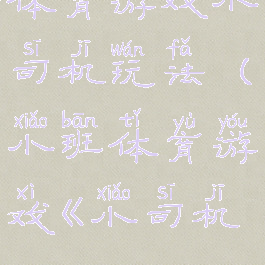 体育游戏小
sī jī wán fǎ
司机玩法（
xiǎo bān tǐ yù yóu
小班体育游
xì xiǎo sī jī
戏《小司机